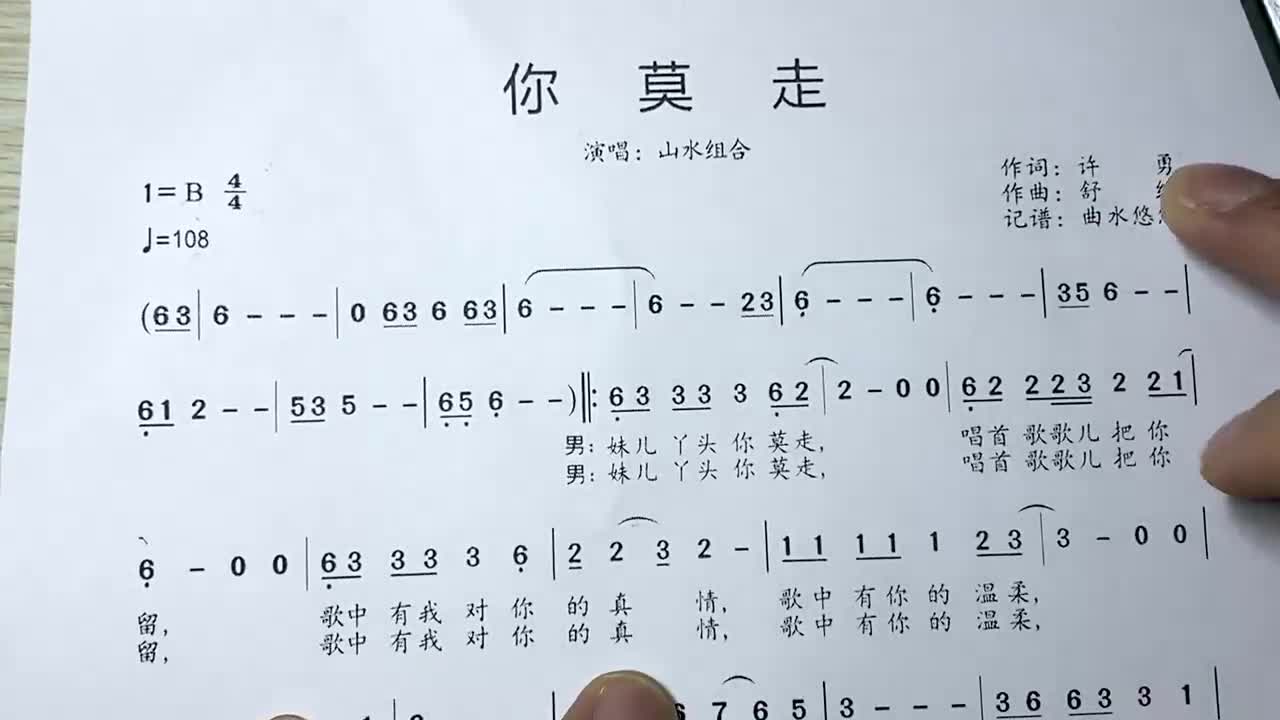 你 莫 走
演唱：山水组合
1= B 4/4
作词：许 勇
作曲：舒
♩=108
记谱：曲水悠
(6 3 | 6 - - - | 0 6 3 6 6 3 | 6 - - - | 6 - - 2 3 | 6̣ - - - | 6̣ - - - | 3 5 6 - - |
6̣ 1 2 - - | 5 3 5 - - | 6̣ 5̣ 6̣ - - ) ‖: 6̣ 3 3 3 3 6̣ 2 | 2 - 0 0 | 6̣ 2 2 2 3 2 2 1 |
男：妹儿 丫头 你 莫走， 唱首 歌歌儿 把 你
男：妹儿 丫头 你 莫走， 唱首 歌歌儿 把 你
6̣ - 0 0 | 6̣ 3 3 3 3 6̣ | 2 2 3 2 - | 1 1 1 1 1 2 3 | 3 - 0 0 |
留， 歌中 有我 对 你 的 真 情， 歌中 有你 的 温柔，
留， 歌中 有我 对 你 的 真 情， 歌中 有你 的 温柔，
7 6 5 | 3 - - - | 3 6 6 3 3 1 |